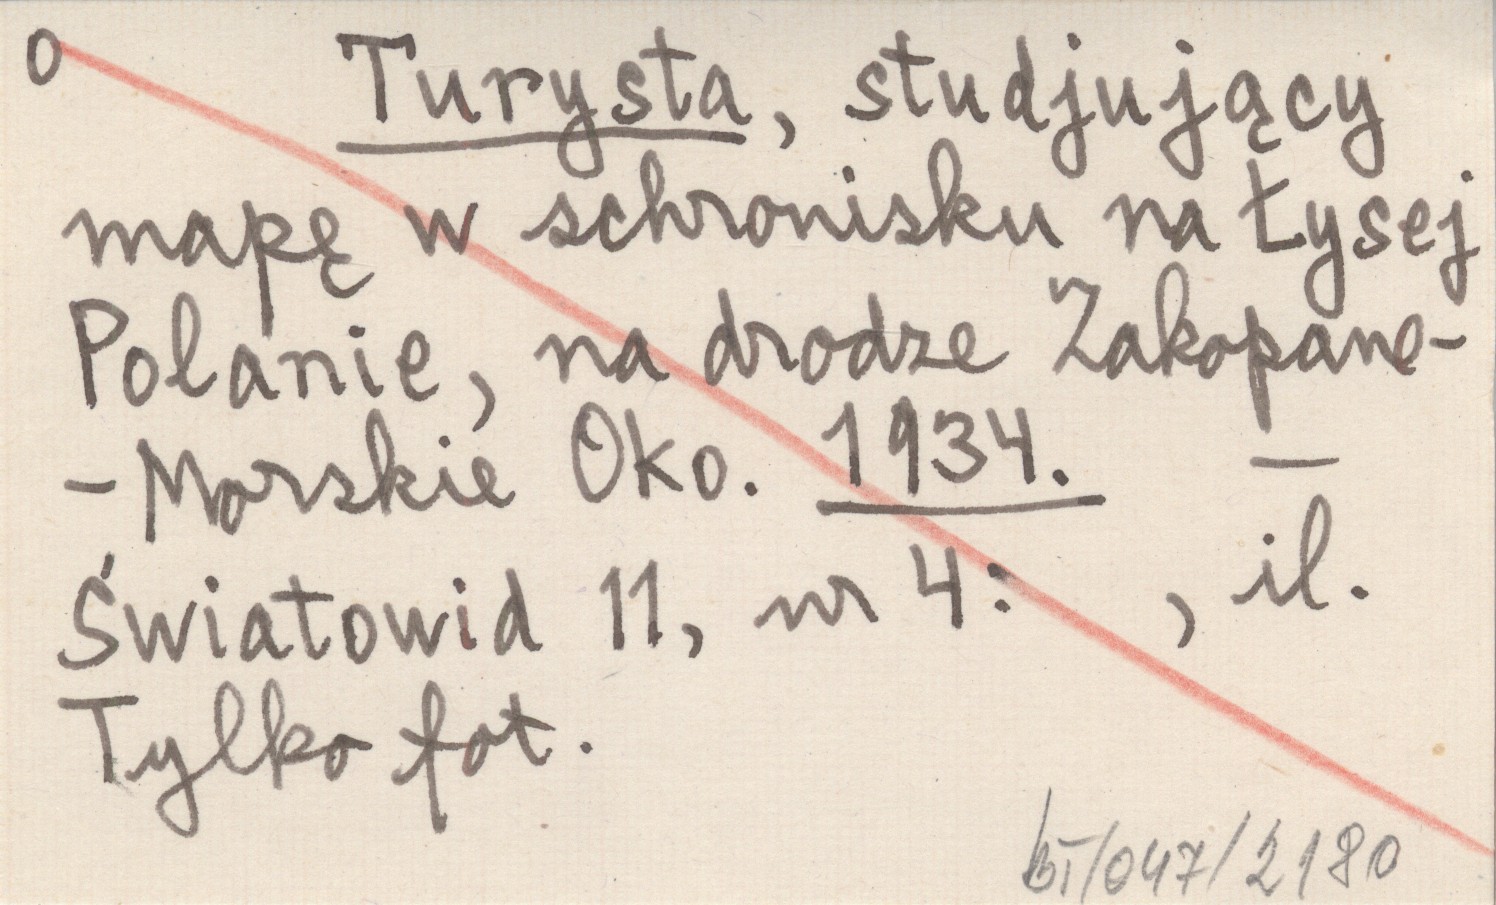 o Turysta, studjujący
mapę w schronisku na Łysej
Polanie, na drodze Zakopane-
-Morskie Oko. 1934. —
Światowid 11, nr 4: , il.
Tylko fot.
bT/047/2180